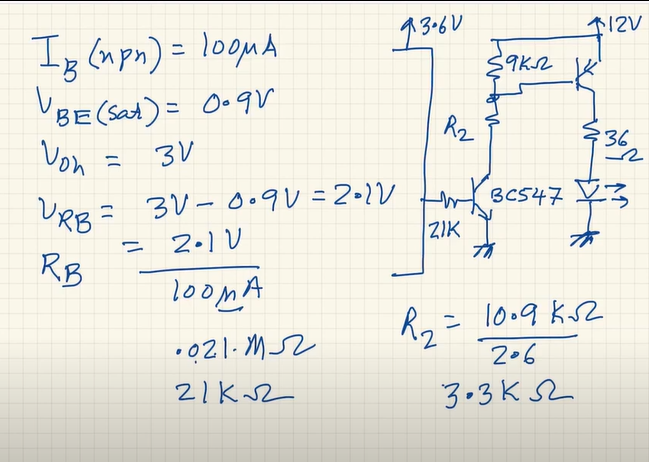 I_B (npn) = 100μA
V_BE(sat) = 0.9V
V_oh = 3V
V_RB = 3V - 0.9V = 2.1V
R_B = 2.1V / 100μA
.021.MΩ
21KΩ
3.6V
12V
9KΩ
R_2
36
Ω
BC547
21K
R_2 = 10.9 KΩ / 2.6
3.3K Ω